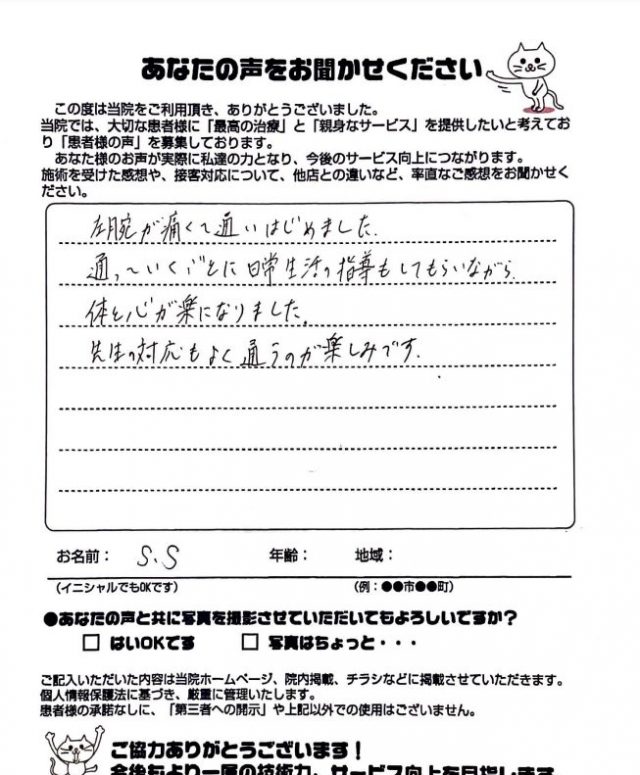 あなたの声をお聞かせください
この度は当院をご利用頂き、ありがとうございました。
当院では、大切な患者様に「最高の治療」と「親身なサービス」を提供したいと考えてお
り「患者様の声」を募集しております。
あなた様のお声が実際に私達の力となり、今後のサービス向上につながります。
施術を受けた感想や、接客対応について、他店との違いなど、率直なご感想をお聞かせく
ださい。
左腕が痛くて通いはじめました.
通っていくごとに日常生活の指導もしてもらいながら.
体と心が楽になりました.
先生の対応もよく通うのが楽しみです.
お名前： S.S 年齢： 地域：
(イニシャルでもOKです) (例：●●市●●町)
●あなたの声と共に写真を撮影させていただいてもよろしいですか？
□ はいOKです □ 写真はちょっと・・・
ご記入いただいた内容は当院ホームページ、院内掲載、チラシなどに掲載させていただきます。
個人情報保護法に基づき、厳重に管理いたします。
患者様の承諾なしに、「第三者への開示」や上記以外での使用はございません。
ご協力ありがとうございます！
今後もより一層の技術力、サービス向上を目指します